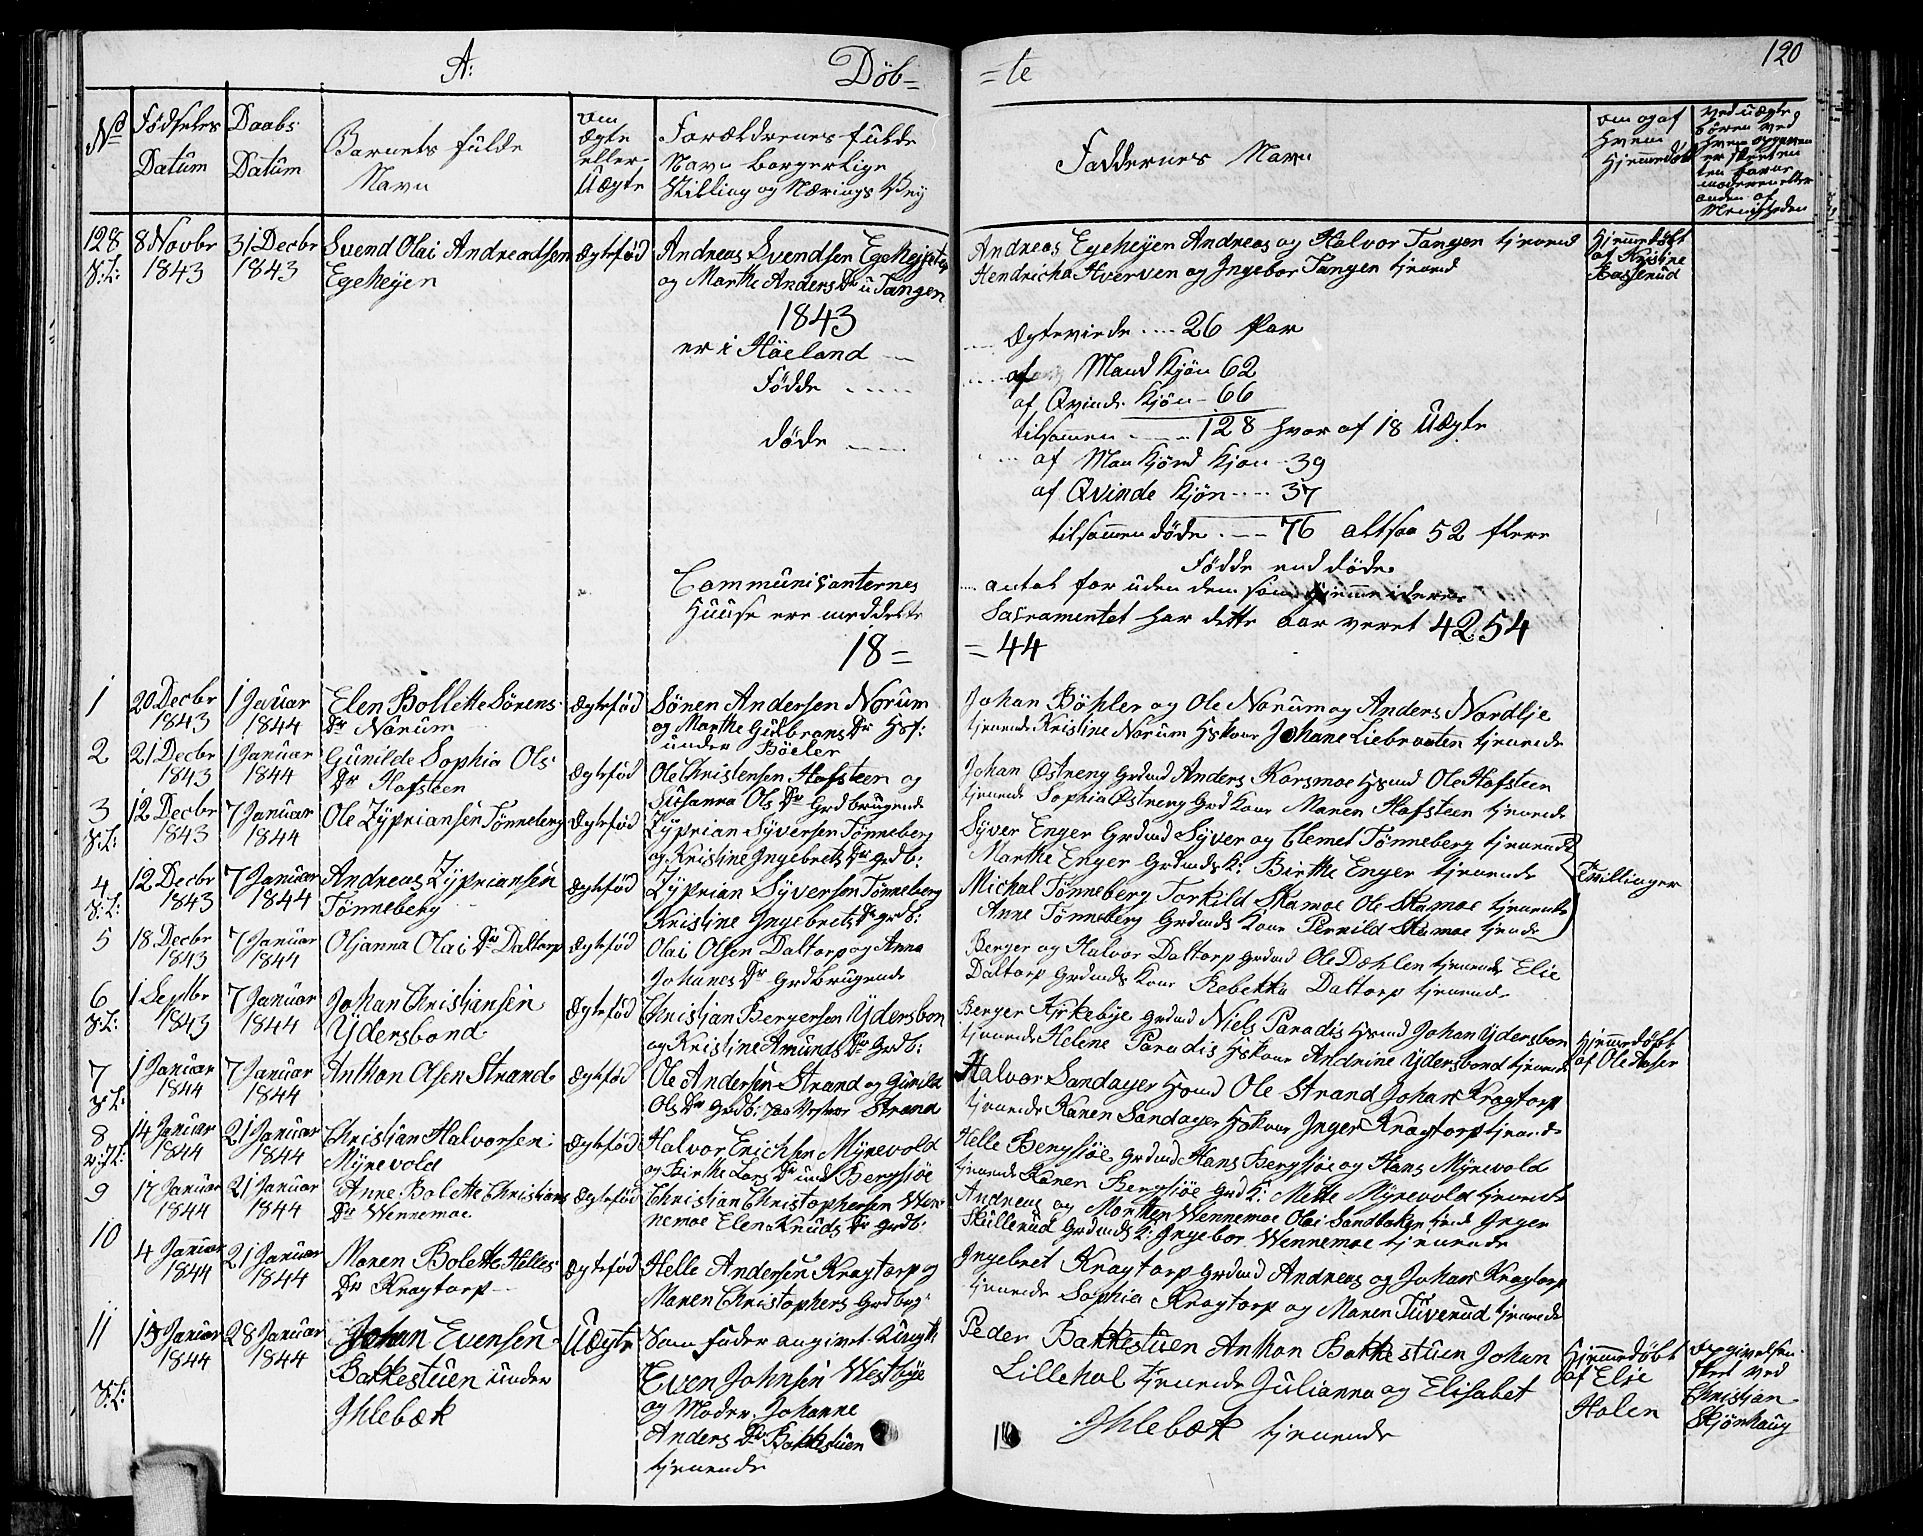 A:
Döb=
=te
120
No
Födselss Datum
Daabs Datum
Barnets fulde Navn
om Ægte eller Uægte
Forældrenes fulde Navn borgerlige Stilling og Nærings Vej
Faddernes Navn
om og af hvem hjemmedöbt
128
8 Novbr 1843
31 Decbr 1843
Svend Olai Andreadsen
Egeheyen
Ægtefød
Andreas Svendsen
og Marthe Anders Dr u Tangen
Andreas Egeheyen Andreas og Halvor Tangen tjenend
Hendricha Hverven og Ingebor Tangen tjenend
hjemmedöbt
af Kristine
Basserud
1843
er i Höeland
Ægteviede .... 26 Par
Födde ....
af Mand Kjön 62
af Qvinde Kjön - 66
tilsammen .... 128 hvor af 18 Uægte
döde ....
af Kjön - 39
af Qvinde Kjön .... 37
tilsammen döde .--- 76 altsaa 52 flere
Födde end döde
Communicanternes
antal for uden dem som hjemme i deres
Huuse ere meddelte
Sacramentet har dette aar veret 4254
18=
=44
1
20 Decbr 1843
1 Januar 1844
Elen Bollette Sörens
Dr Norum
Ægtefød
Sönen Andersen Norum
og Marthe Gulbrans Dr Hsf:
under Böeler
Johan Böhler og Ole Norum og Anders Nordlie
tjenende Kristine Norum Hskone Johane Liebraaten tjenende
2
21 Decbr 1843
1 Januar 1844
Gunilde Sophia Ols
Dr Hafsteen
Ægtefød
Ole Christensen Hafsteen og
Susanna Ols Dr Grdbrugende
Johan Østreng Grdmd Anders Korsmoe Hsmd Ole Hafsteen
tjenende Sophia Østreng Grdkone Maren Hafsteen tjenende
3
12 Decbr 1843
7 Januar 1844
Ole Zypriansen Tönneberg
Ægtefød
Zyprian Syversen Tönneberg
og Kristine Ingebrets Dr Grdb:
Syver Enger Grdmd Syver og Clemet Tönneberg tjenende
Marthe Enger Grdmds K: Birthe Enger tjenende
Tvillinger
4
12 Decbr 1843
7 Januar 1844
Andreas Zypriansen
Tönneberg
Ægtefød
Zyprian Syversen Tönneberg
Kristine Ingebrets Dr grdb:
Michal Tönneberg Torkild Skamoe Ole Skamoe tjenende
Anne Tönneberg Grdmds Kone Pernild Skamoe tjende
5
18 Decbr 1843
7 Januar 1844
Oljanna Olai Dr Daltorp
Ægtefød
Olai Olsen Daltorp og Anna
Johanes Dr Grdbrugende
Berger og Halvor Daltorp Grdmd Ole Dæhlen tjenende Elie
Daltorp Grdmds Kone Rebekka Daltorp tjenende
6
1 Septbr 1843
7 Januar 1844
Johan Christiansen
Ydersbond
Ægtefød
Christian Bergersen Ydersbon
og Kristine Amunds Dr Grdb:
Berger Kirkebye Grdmd Niels Paradis Hsmd Johan Ydersbon
tjenende Helene Paradis Hskone Andrine Ydersbond tjenende
hjemmedöbt
af Ole
7
1 Januar 1844
7 Januar 1844
Anthon Olsen Strand
Ægtefød
Ole Andersen Strand og Gunild
Ols Dr Grdb: paa Strand
Halvor Sandager Hsmd Ole Strand Johan Kragtorp
tjenende Karen Sandager Hskone Inger Kragtorp tjenende
8
14 Januar 1844
21 Januar 1844
Christian Halvorsen
Myrevold
Ægtefød
Halvor Erichsen Myrevold
og Birthe Lars Dr und Bergsjöe
Helle Bergsjöe Grdmd Hans Bergsjöe og Hans Myrevold
tjenende Karen Bergsjöe Grd K: Mette Myrevold tjenende
9
17 Januar 1844
21 Januar 1844
Anne Bolette Christians
Dr Wennemoe
Ægtefød
Christian Christophersen Wen=
nemoe Elen Knuds Dr Grdb:
Andreas og Morthen Wennemoe Olai Sandbaken tjend Inger
Skullerud Grdmds K: Ingebor Wennemoe tjenende
10
4 Januar 1844
21 Januar 1844
Maren Bolette Helles
Dr Kragtorp
Ægtefød
Helle Andersen Kragtorp og
Maren Christophers Grdbrg:
Ingebret Kragtorp Grdmd Andreas og Johan Kragtorp
tjenende Sophia Kragtorp og Maren Tuverud tjenende
11
15 Januar 1844
28 Januar 1844
Johan Evensen
Bakkestuen under
Ihlebæk
Uægte
Som fader angivet Ungk:
Even Johnsen Westbye
og Moder Johanne
Anders Dr Bakkestuen
tjenende
Peder Bakkestuen Anthon Bakkestuen Johan
Lillehol tjenende Julianna og Elisabet
Ihlebæk tjenende
hjemmedöbt
af Elie
Holen
opgivelsen
skeet ved
Christian
Skjönhaug